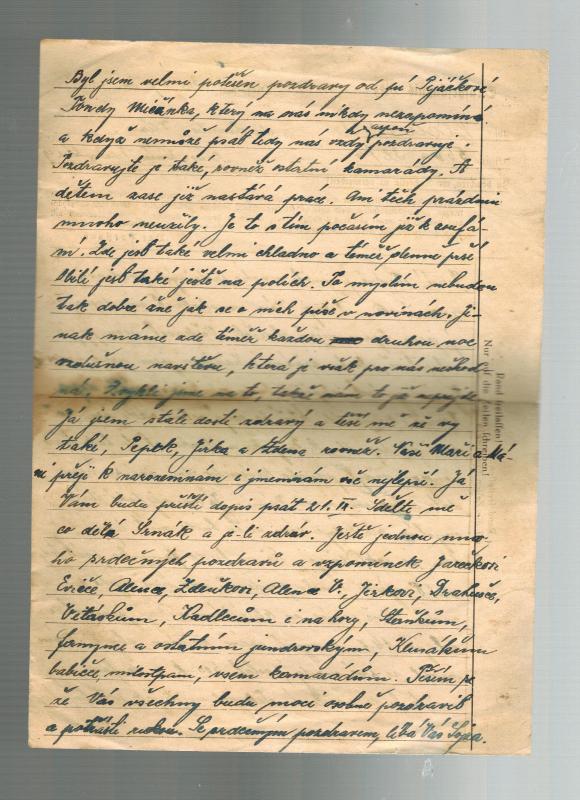 Byl jsem velmi potěšen pozdravy od pí Pijáčkové
Tondy Mičánka, který na nás nikdy nezapomíná
a když nemůže psát tedy nás vždy pozdravuje.
Pozdravujte je také, rovněž ostatní kamarády. A
dětem zase již nastává práce. Am těch prázdnin
mnoho neužily. Je to s tím počasím již k zoufá-
ní. Zde jest také velmi chladno a téměř denně prší
Obilí jest také ještě na polích. To myslím nebudou
tak dobré žně jak se o nich píše v novinách. Ji-
nak máme zde téměř každou druhou noc
vzdušnou navštěvu, která je však pro nás neškod
ná. Zvykli jsme na to, takže nám to již nepřijde
Já jsem stále dosti zdravý a těší mě že vy
také, Pepek, Jirka a Zdena rovněž. Vaší Maři a Má-
ni přeji k narozeninám i jmeninám vše nejlepší. Já
Vám budu příští dopis psát 21. IX. Sdělte mě
co dělá Srnák a je-li zdráv. Ještě jednou mno-
ho srdečných pozdravů a vzpomínek Jarečkovi
Evičce, Alence, Zdeňkovi, Alence V., Jirkovi, Drahušce,
Vításkům, Kadlecům i na hory, Staňkům,
a ostatním jundrovským, Klusákům
babičce, milostpaní, všem kamarádům. Těším se
že Vás všechny budu moci osobně pozdravit
a potřásti rukou. Se srdečným pozdravem, líbá Váš
Rand freilassen!
Nur auf die Zeilen schreiben!